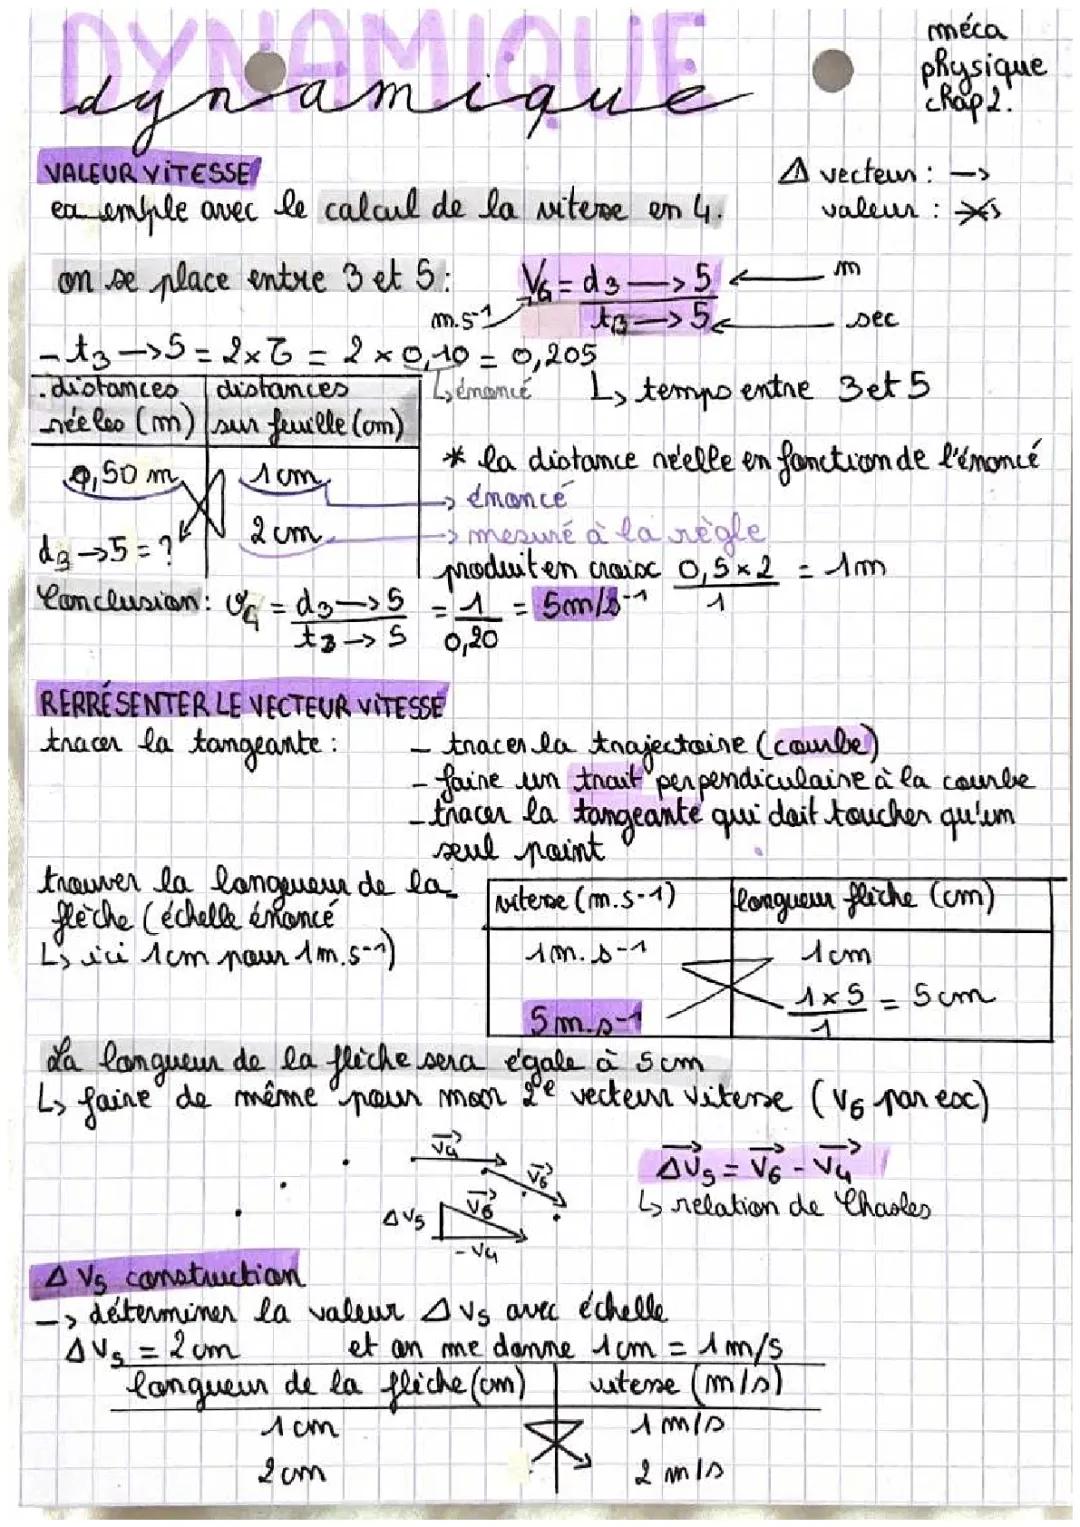 DYNAMIQUE
dynamique
méca
physique
chap 2.
VALEUR VITESSE
exemple avec le calcul de la vitesse en 4.
⚠ vecteur : →
valeur :
on se place entre 3 et 5 :
V4 = d3 → 5 / t3 → 5
m
sec
m.s-1
- t3 → 5 = 2 × τ = 2 × 0,10 = 0,20s
↳ énoncé
↳ temps entre 3 et 5
distances réeles (m) | distances sur feuille (cm)
0,50 m | 1 cm
d3 → 5 = ? | 2 cm
* la distance réelle en fonction de l'énoncé
→ énoncé
→ mesuré à la règle
produit en croix 0,5 × 2 / 1 = 1m
Conclusion : v4 = d3 → 5 / t3 → 5 = 1 / 0,20 = 5m/s-1
RERRÉSENTER LE VECTEUR VITESSE
tracer la tangeante :
- tracer la trajectoire (courbe)
- faire un trait perpendiculaire à la courbe
- tracer la tangeante qui doit toucher qu'un
seul point
trouver la longueur de la
flèche (échelle énoncé
↳ ici 1cm pour 1m.s-1)
vitesse (m.s-1) | longueur flèche (cm)
1m.s-1 | 1cm
5m.s-1 | 1×5 / 1 = 5cm
La longueur de la flèche sera égale à 5cm
↳ faire de même pour mon 2e vecteur vitesse (V6 par ex)
V4
V6
ΔV5
V6
- V4
ΔV5 = V6 - V4
↳ relation de Chasles
Δ V5 construction
→ déterminer la valeur Δ V5 avec échelle
ΔV5 = 2cm et on me donne 1cm = 1m/s
longueur de la flèche (cm) | vitesse (m/s)
1cm | 1 m/s
2cm | 2 m/s